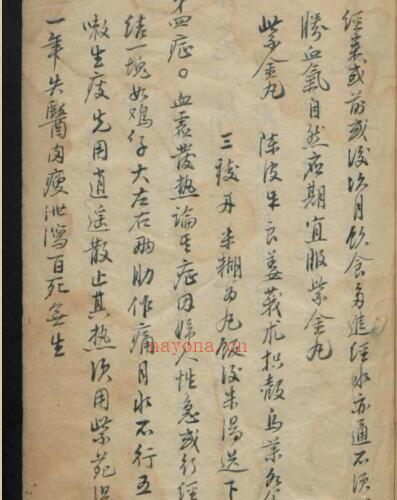 經來或前或後次月飲食多進經水亦通不須
勝血氣自然應期宜服紫金丸
紫金丸 陳皮 良姜莪朮枳殼烏藥各
三稜 米糊為丸飯後米湯送下
四症〇血虛發熱論 症因婦人性急或行經
結一塊如鷄仔大左右兩肋作痛月水不行五
嗽生痰先用逍遥散止其熱次用紫菀湯
一年失醫肉瘦泄瀉百死無生
mayona.cn